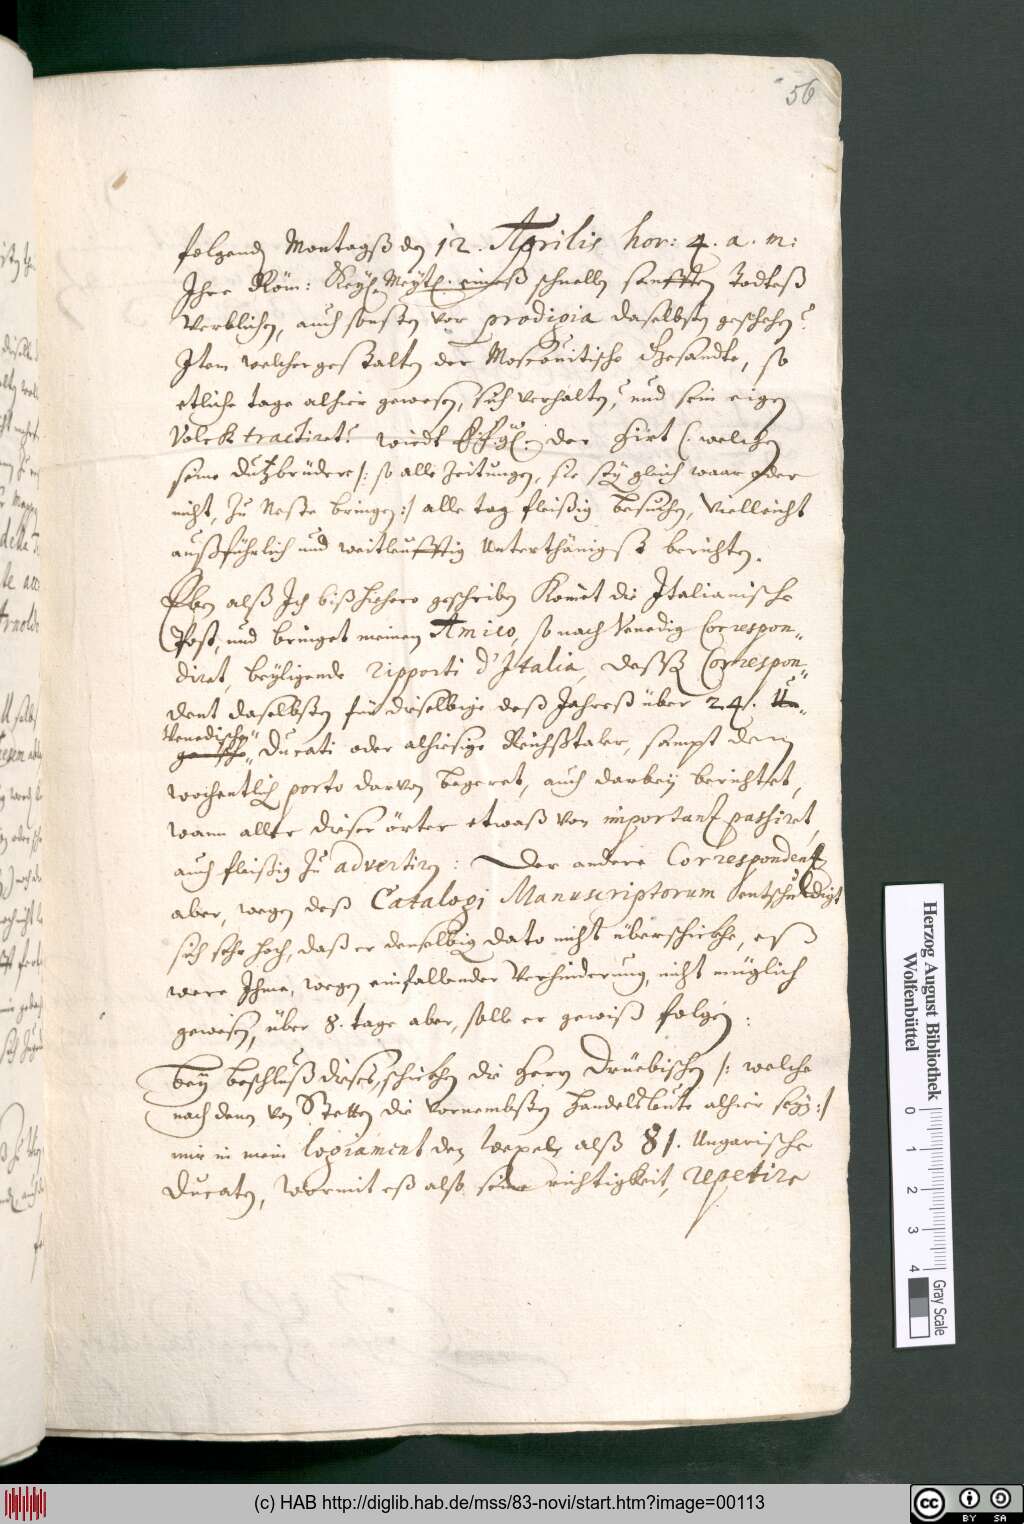 56
folgenden Montagß den 12. Aprilis hor: 4. a. m:
Ihre Röm: Keÿs. Meÿt. eineß schnellen sanfften Todteß
Verblichen, auch sonsten vor prodigia daselbsten geschehen?
Item welcher gestalten der Moscouitische Gesandte, so
etliche tage alhier gewesen, sich verhalten, und sein eigen
Volck tractiret? würdt der Hirt (: welchen
seine Dutzbrüdere /: so alle Zeitungen, sie seÿ gleich waar oder
nicht, zu Neste bringen :/ alle tag fleißig besuchen, Vielleicht
außführlich und weitleufftig Unterthänigst berichten.
Eben alß Ich bißhiehero geschrieben Kömet die Italianische
Post, und bringet meinen Amico, so nach Venedig Correspon„
diret, beÿligende rapporti d'Italia, desß Correspon„
dent daselbsten für dieselbige deß Jahreß über 24. U„
Venedische„
garische„ Ducati oder alhiesige Reichßtaler, sampt dem
wochentlich porto darvon begeret, auch darbeÿ berichtet,
wann aller dieser örter etwaß von importanz passiret,
auch fleißig zu advertiren: Der andere Correspondent
aber, wegen deß Catalogi Manuscriptorum entschuldigt
sich sehr hoch, daß er denselbig dato nicht überschicke, eß
were Ihme, wegen einfallender Verhinderung, nicht müglich
gewesen, über 8. tage aber, solle er gewiß folgen:
beÿ beschluß dieses, schicken die Herrn Drüebischen /: welche
nach denen von Stetten die Vornembsten Handelsleute alhier seÿ :/
mir in mein logiament den alß 81. Ungarische
Ducaten, wormit eß also seine richtigkeit, repetire
Herzog August Bibliothek
Wolfenbüttel
0 1 2 3 4
Gray Scale
(c) HAB http://diglib.hab.de/mss/83-novi/start.htm?image=00113
cc BY SA